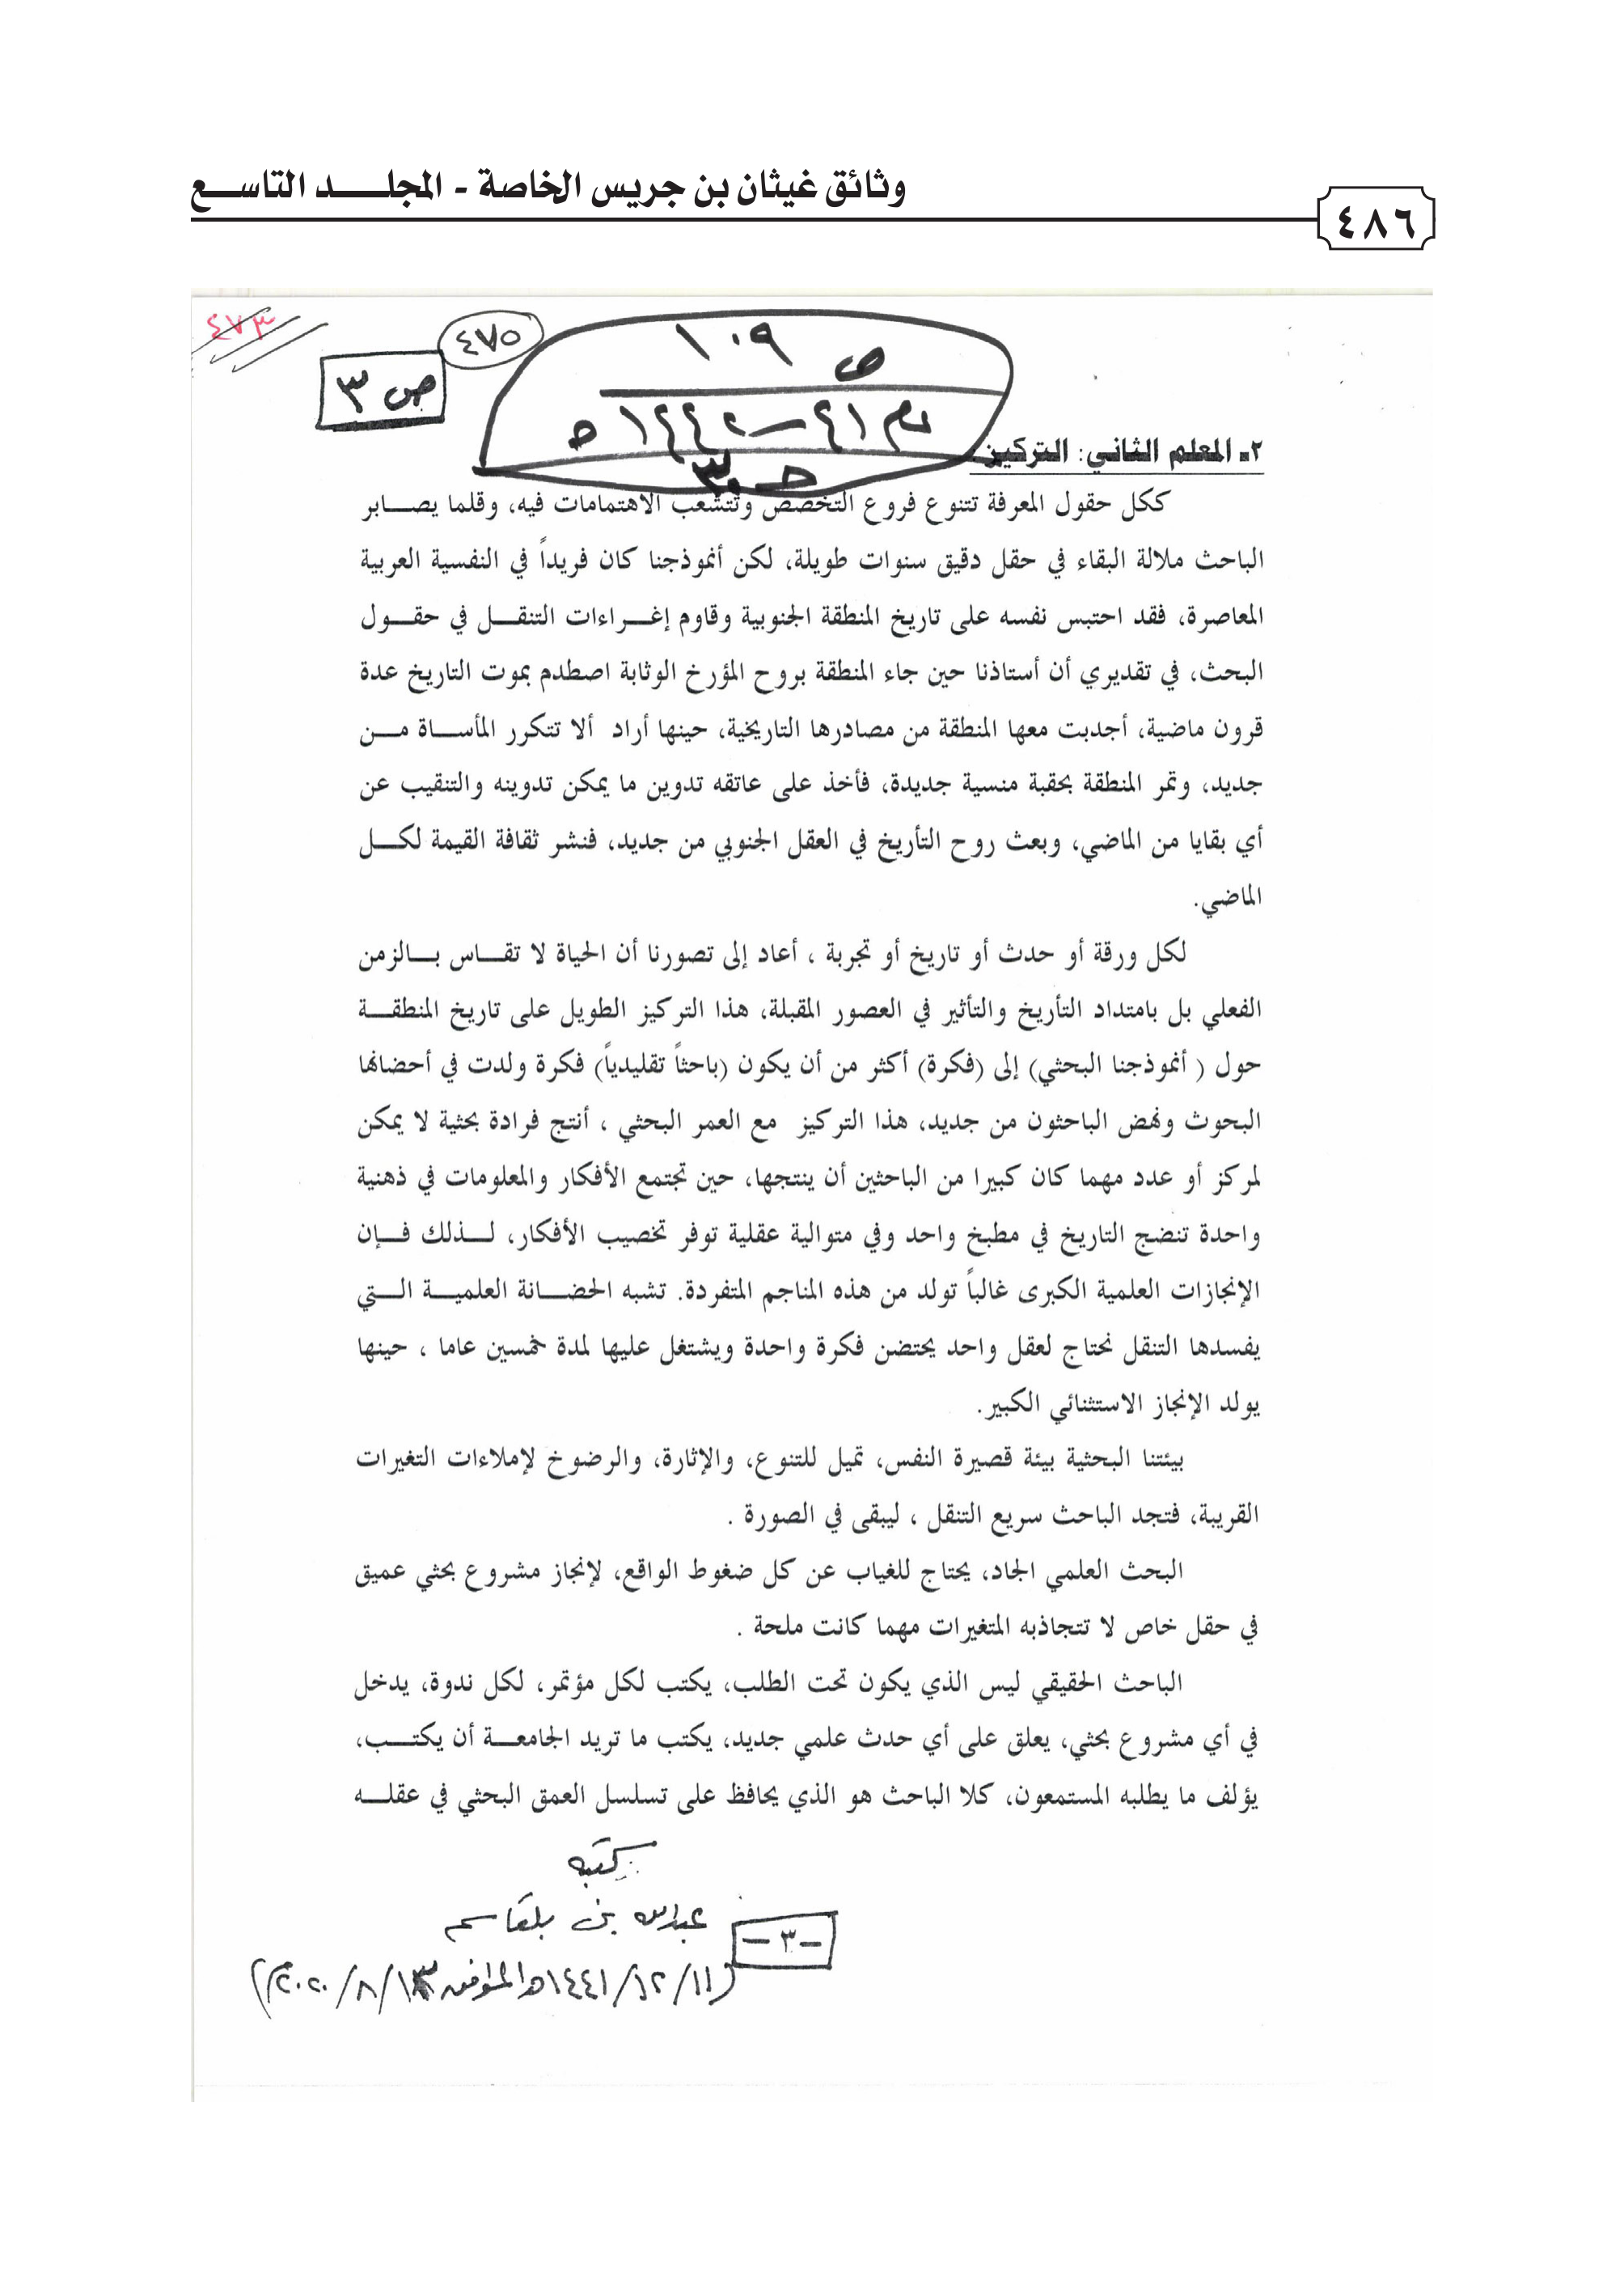 وثائق غيثان بن جريس الخاصة - المجلد التاسع
٤٨٦
٤٧٣
٤٧٥
ص ٣
ص ١٠٩
٤١ - ١٤٤٢هـ
٢- المعلم الثاني: التركيز
ككل حقول المعرفة تتنوع فروع التخصص وتتشعب الاهتمامات فيه، وقلما يصابر
الباحث ملالة البقاء في حقل دقيق سنوات طويلة، لكن أنموذجنا كان فريداً في النفسية العربية
المعاصرة، فقد احتبس نفسه على تاريخ المنطقة الجنوبية وقاوم إغراءات التنقل في حقول
البحث، في تقديري أن أستاذنا حين جاء المنطقة بروح المؤرخ الوثابة اصطدم بموت التاريخ عدة
قرون ماضية، أجدبت معها المنطقة من مصادرها التاريخية، حينها أراد ألا تتكرر المأساة من
جديد، وتمر المنطقة بحقبة منسية جديدة، فأخذ على عاتقه تدوين ما يمكن تدوينه والتنقيب عن
أي بقايا من الماضي، وبعث روح التأريخ في العقل الجنوبي من جديد، فنشر ثقافة القيمة لكل
الماضي.
لكل ورقة أو حدث أو تاريخ أو تجربة ، أعاد إلى تصورنا أن الحياة لا تقاس بالزمن
الفعلي بل بامتداد التأريخ والتأثير في العصور المقبلة، هذا التركيز الطويل على تاريخ المنطقة
حول ( أنموذجنا البحثي) إلى (فكرة) أكثر من أن يكون (باحثاً تقليدياً) فكرة ولدت في أحضانها
البحوث ونهض الباحثون من جديد، هذا التركيز مع العمر البحثي ، أنتج فرادة بحثية لا يمكن
لمركز أو عدد مهما كان كبيرا من الباحثين أن ينتجها، حين تجتمع الأفكار والمعلومات في ذهنية
واحدة تنضج التاريخ في مطبخ واحد وفي متوالية عقلية توفر تخصيب الأفكار، لذلك فإن
الإنجازات العلمية الكبرى غالباً تولد من هذه المناجم المتفردة. تشبه الحضانة العلمية التي
يفسدها التنقل نحتاج لعقل واحد يحتضن فكرة واحدة ويشتغل عليها لمدة خمسين عاما ، حينها
يولد الإنجاز الاستثنائي الكبير.
بيئتنا البحثية بيئة قصيرة النفس، تميل للتنوع، والإثارة، والرضوخ لإملاءات التغيرات
القريبة، فتجد الباحث سريع التنقل ، ليبقى في الصورة .
البحث العلمي الجاد، يحتاج للغياب عن كل ضغوط الواقع، لإنجاز مشروع بحثي عميق
في حقل خاص لا تتجاذبه المتغيرات مهما كانت ملحة .
الباحث الحقيقي ليس الذي يكون تحت الطلب، يكتب لكل مؤتمر، لكل ندوة، يدخل
في أي مشروع بحثي، يعلق على أي حدث علمي جديد، يكتب ما تريد الجامعة أن يكتب،
يؤلف ما يطلبه المستمعون، كلا الباحث هو الذي يحافظ على تسلسل العمق البحثي في عقله
كتبه
عبدالله بن بلقاسم
-٣-
(١١/١٢/١٤٤١هـ الموافق /٨/٢٠٢٠م)